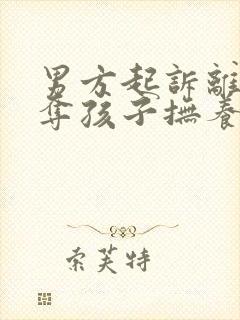 男方起訴離
奪孩子撫養
索芙特